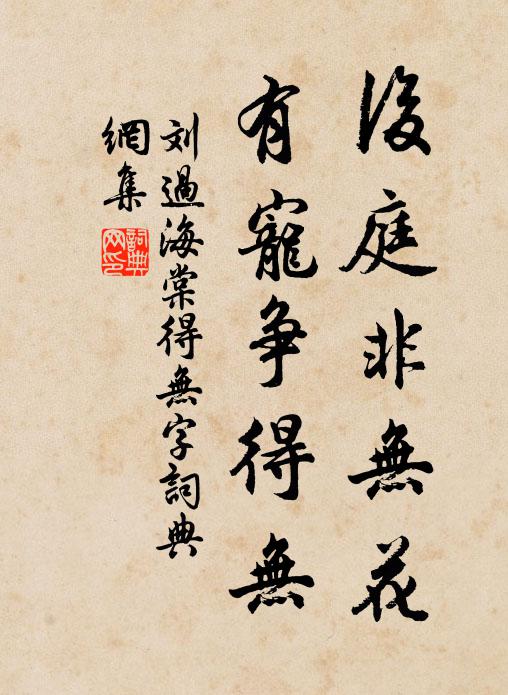 後庭非無花
有寵爭得無
刘過海棠得無字詞典
網集
詞典
网印